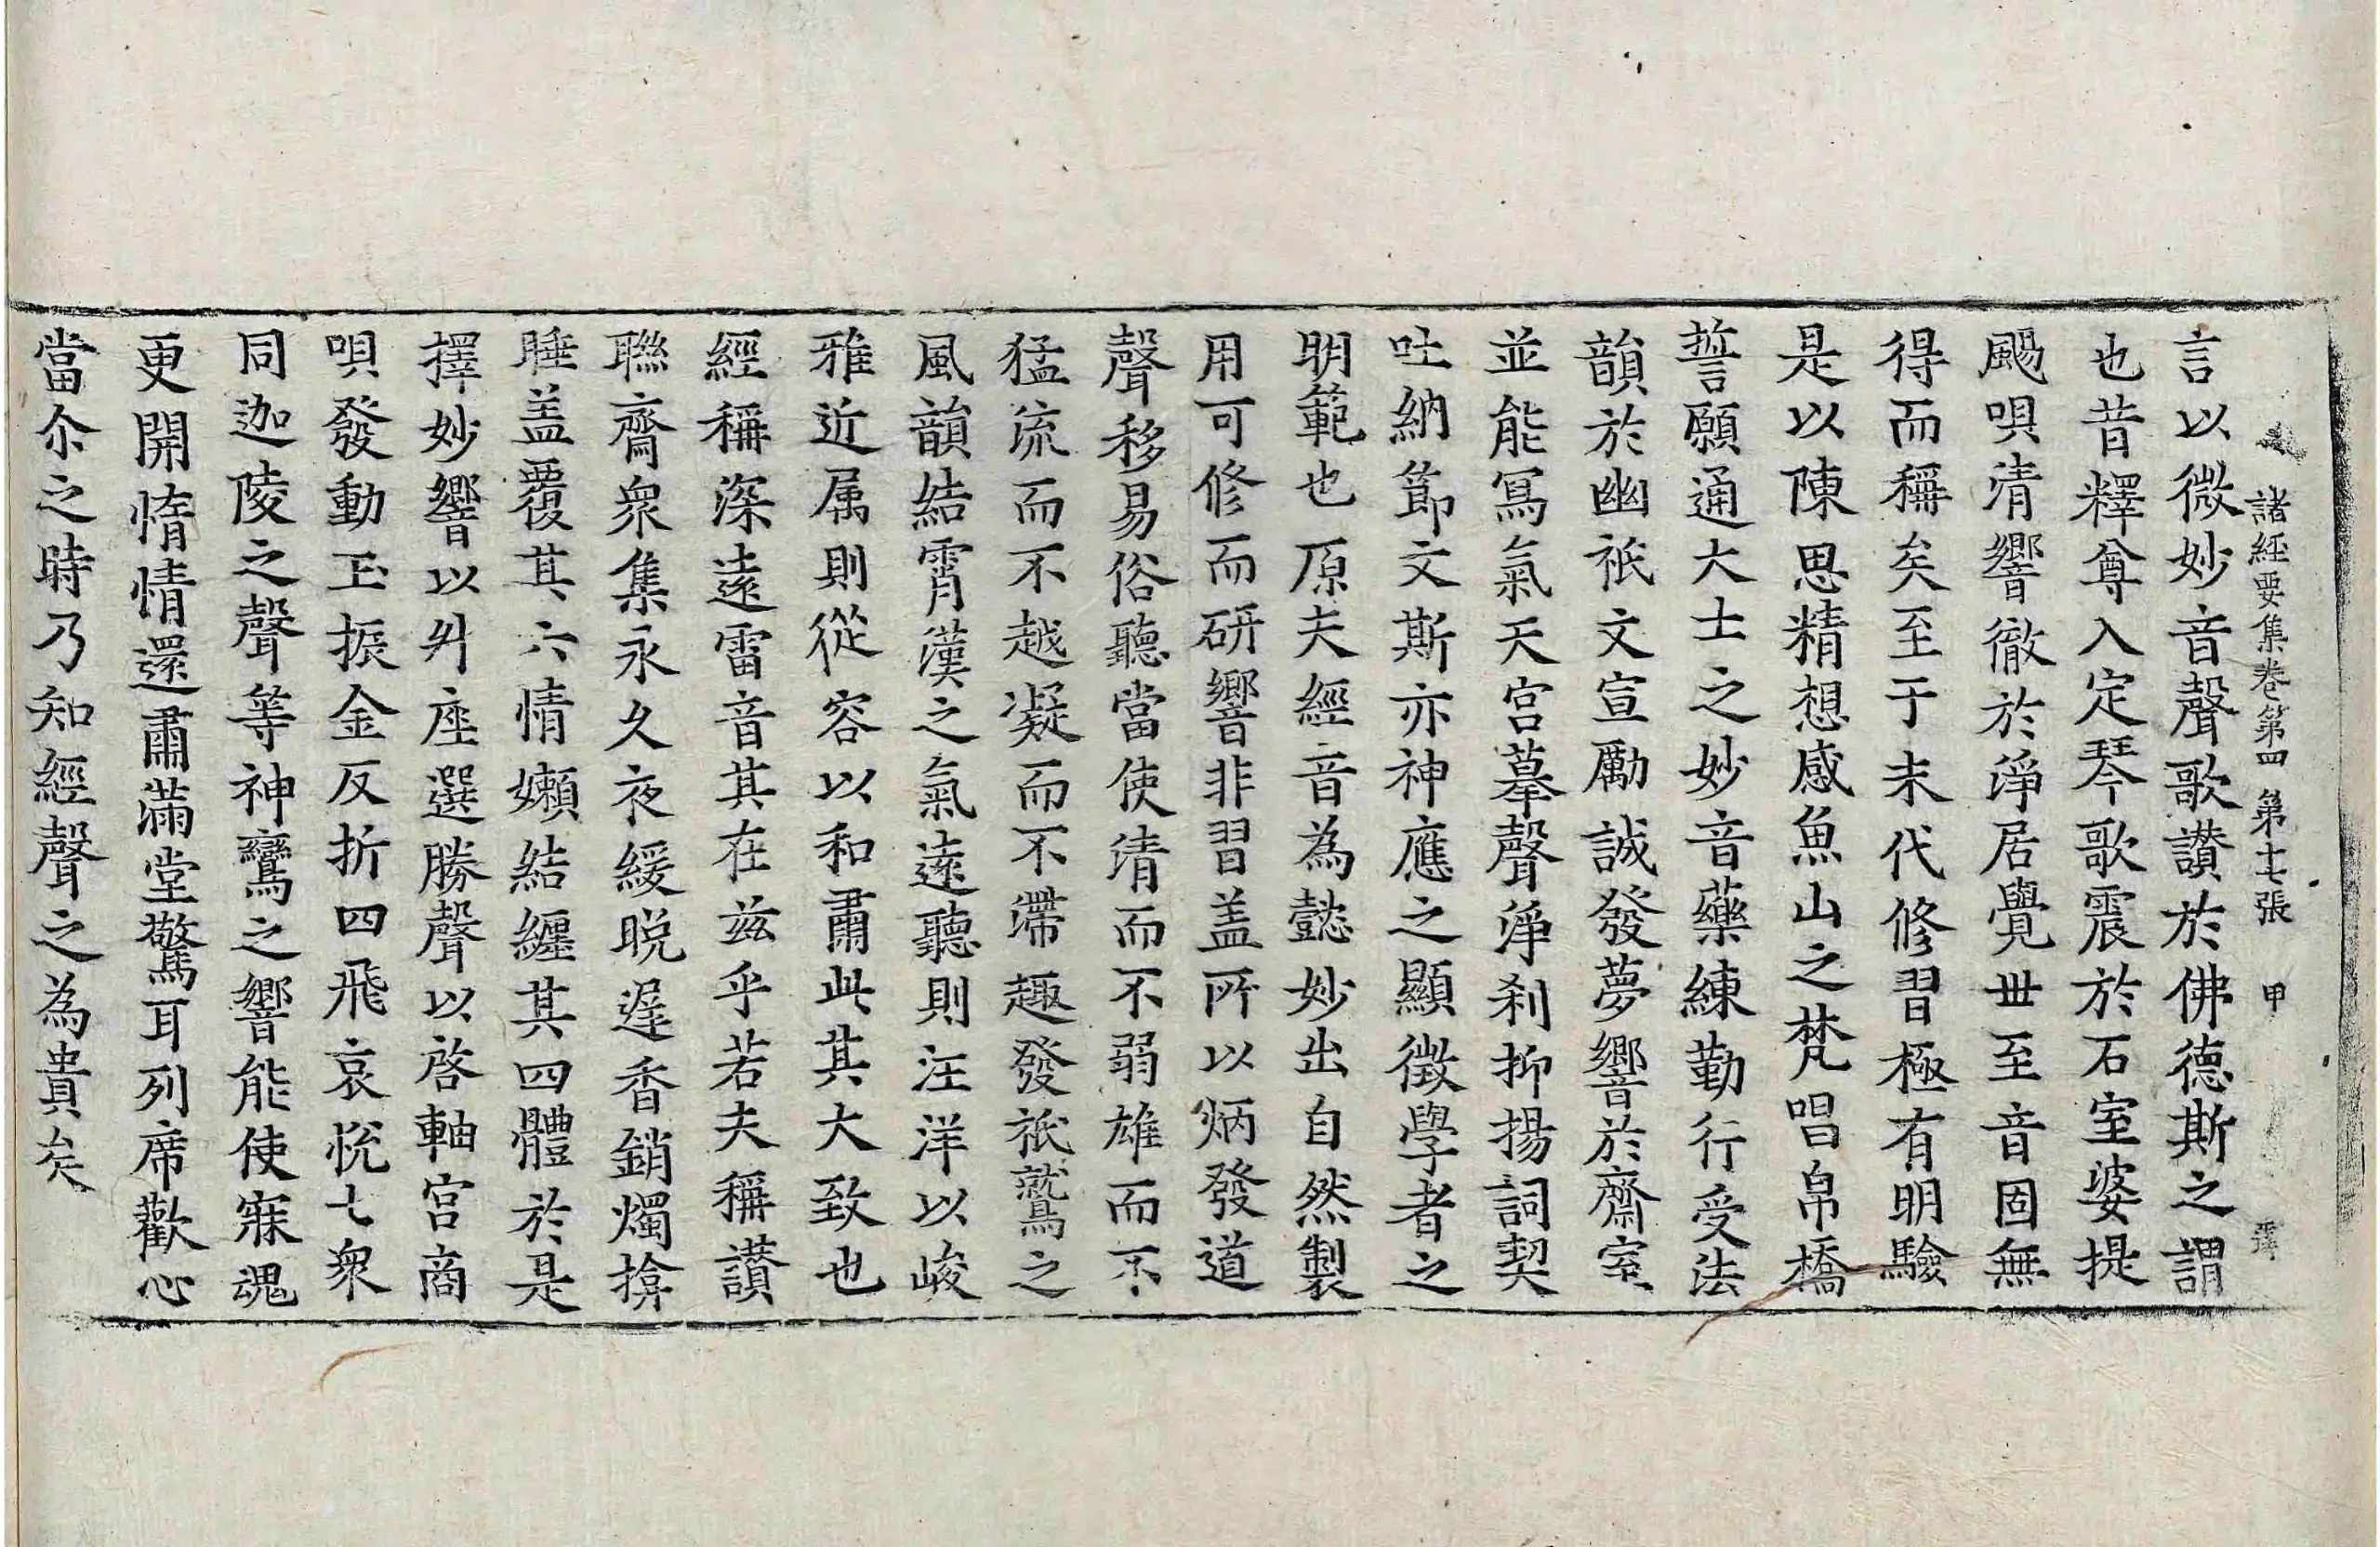 諸經要集卷第四　第十七張　甲
言以微妙音聲歌讃於佛德斯之謂
也昔釋尊入定琴歌震於石室婆提
颺唄清響徹於淨居覺世至音固無
得而稱矣至于末代修習極有明驗
是以陳思精想感魚山之梵唱帛橋
誓願通大士之妙音藥練勤行受法
韻於幽祇文宣勵誠發夢響於齋室
並能寫氣天宮摹聲淨刹抑揚詞契
吐納節文斯亦神應之顯徵學者之
明範也原夫經音為懿妙出自然製
用可修而研響非習盖所以炳發道
聲移易俗聽當使清而不弱雄而不
猛流而不越凝而不滯趣發祇鷲之
風韻結霄漢之氣遠聽則汪洋以峻
雅近属則從容以和肅此其大致也
經稱深遠雷音其在兹乎若夫稱讃
聮齋衆集永久夜緩晚遲香銷燭揜
睡盖覆其六情嬾結纏其四體於是
擇妙響以升座選勝聲以啓軸宮商
唄發動玉振金反折四飛哀悅七衆
同迦陵之聲等神鸞之響能使寐魂
更開惰情還肅滿堂驚耳列席歡心
當尒之時乃知經聲之為貴矣